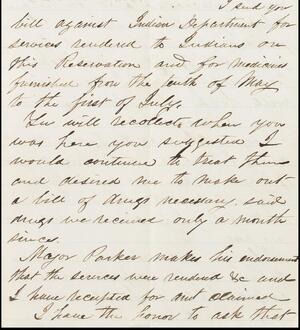 I send you
bill against Indian Department for
services rendered to Indians on
this Reservation and for medicines
furnished from the tenth of May
to the first of July.
You will recollect, when you
was here you suggested I
would continue to treat them
and desired me to make out
a bill of drugs necessary. said
drugs we received only a month
since.
Major Parker makes his endorsement
that the services were rendered &c and
I have receipted for amt claimed
I have the honor to ask that